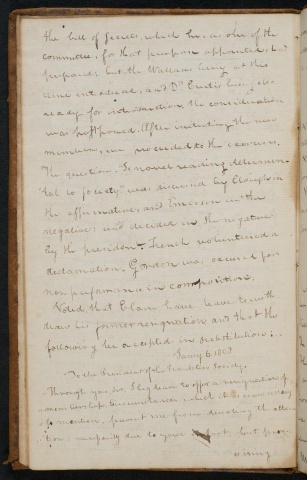 the bill of Secrets, which he, as one of the
committee, for that purpose appointed, had
prepared; but the Wallace being at this
time introduced, and Dr. Curtis being also
ready for introduction, the consideration
was postponed. After initiating the new
members, we proceeded to the exercises.
The question "Is novel reading detrimen-
tal to society" was discussed by Clough in
the affirmative, and Emerson in the
negative; and decided in the negative
by the president. French volunteered a
declamation. Gordon was excused for
non performance in composition.
Voted, that Clark have leave to with
draw his former resignation and that the
following be accepted in substitution:
Jany 6, 1823
To the President of the Franklin Society,
Through you, Sir, I beg leave to offer a resignation of
membership. Circumstances which it is unnecessary
to mention, prevent me from devoting the atten
tion, necessarily due to your but from